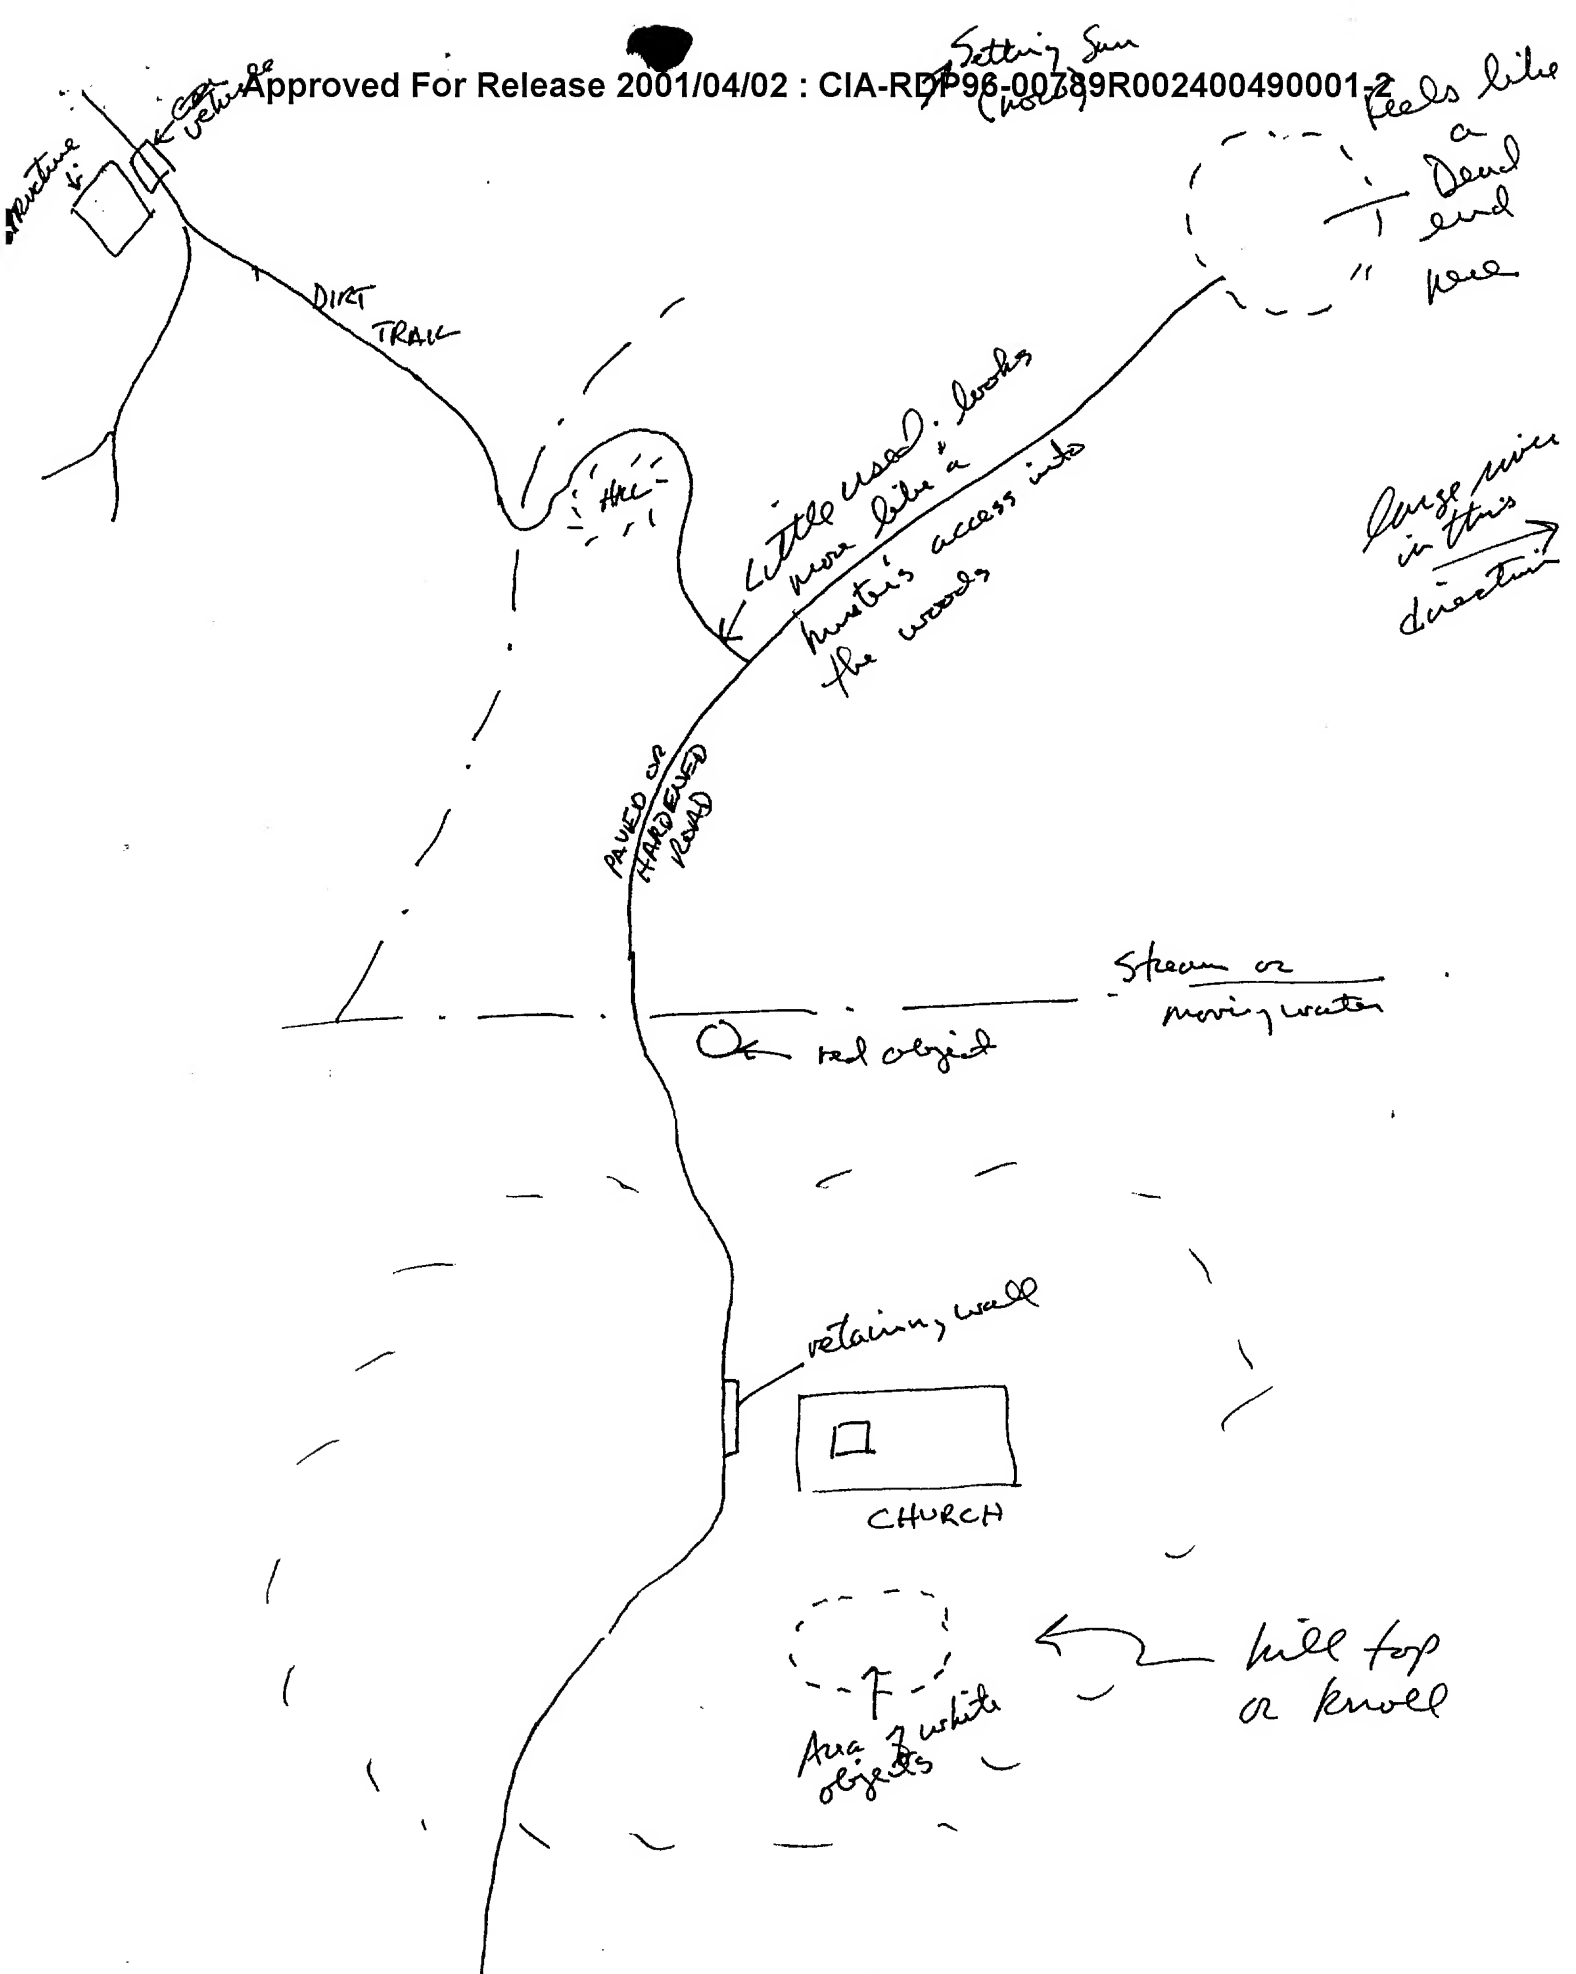 Setting Sun
Approved For Release 2001/04/02 : CIA-RDP96-00789R002400490001-2
vehicle
Feels like
a
Dead
end
here
structure
DIRT
TRAIL
HILL
Little used; looks
more like a
hunter's access into
the woods
large river
in this
direction
PAVED OR
HARDENED
ROAD
Stream or
moving water
red object
retaining wall
CHURCH
hill top
or knoll
Area of white
objects